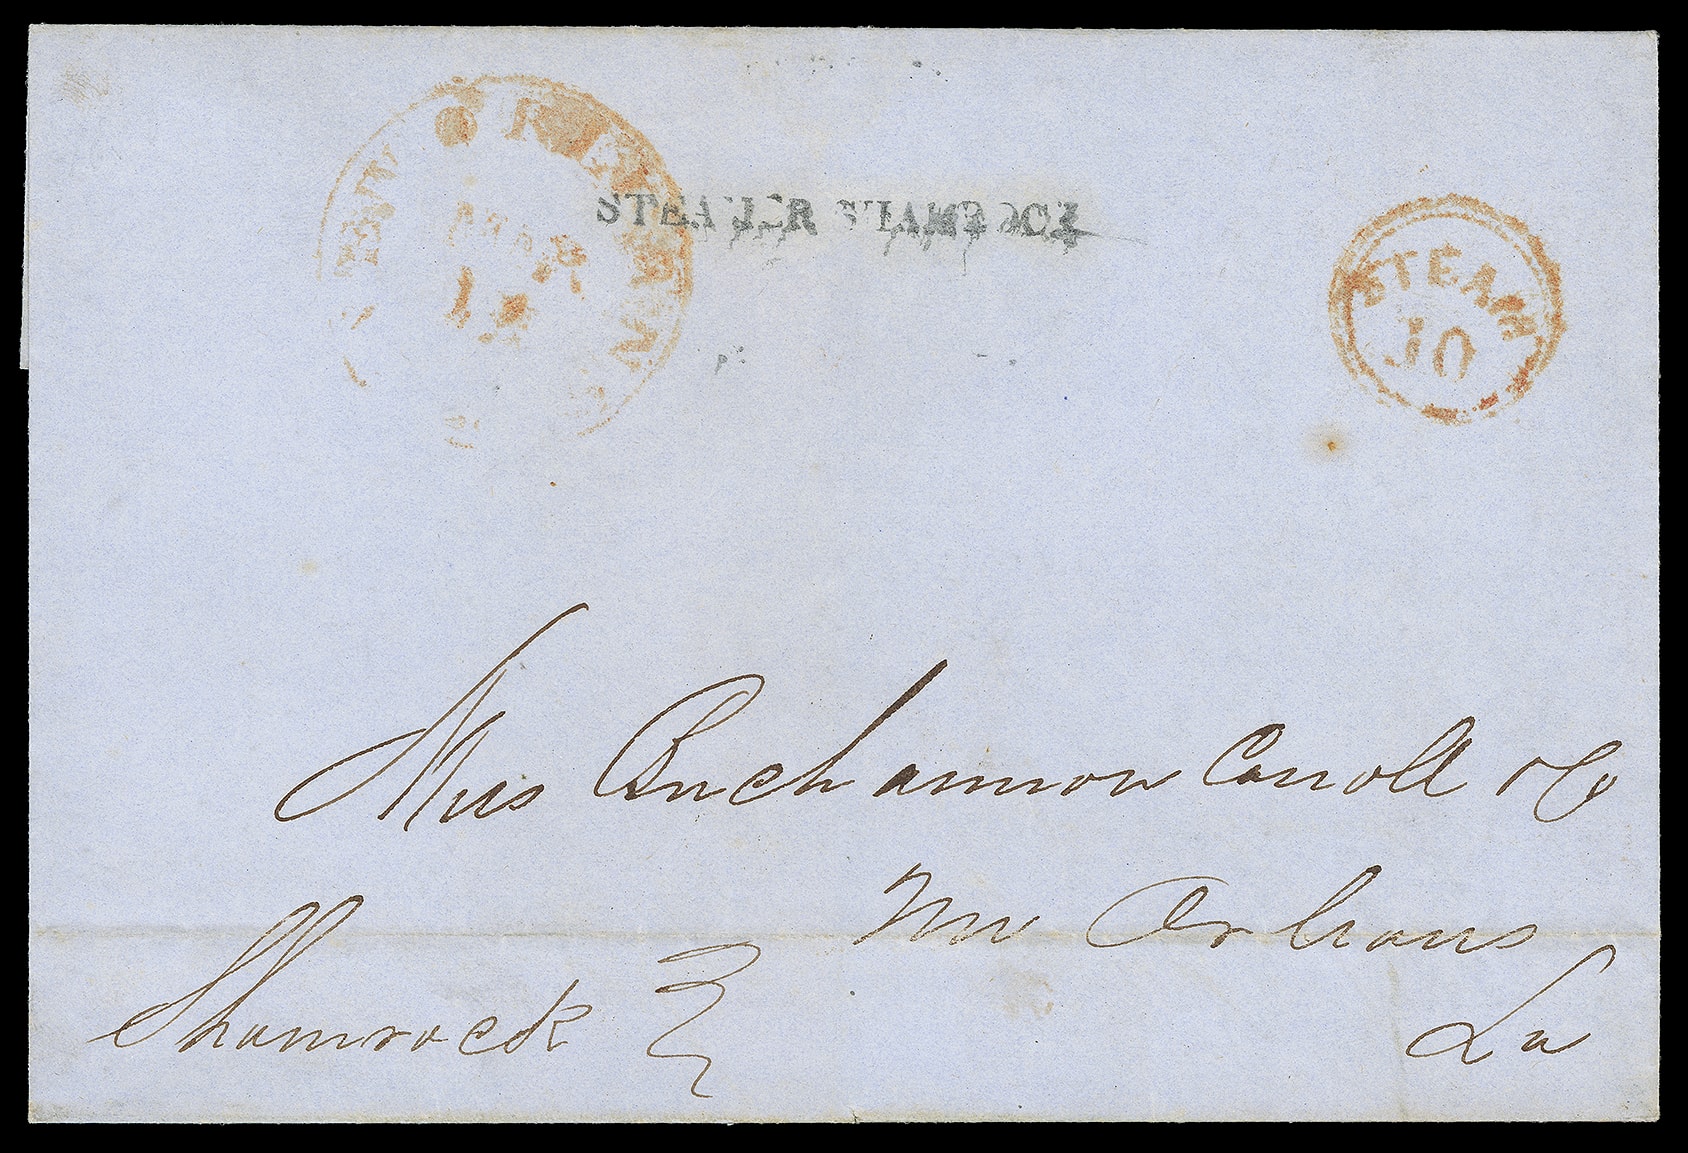 NEW ORLEANS
MAR
12
STEAMER SHAMROCK
STEAM
10
Mess Buchannon Carroll & Co
New Orleans
La
Shamrock